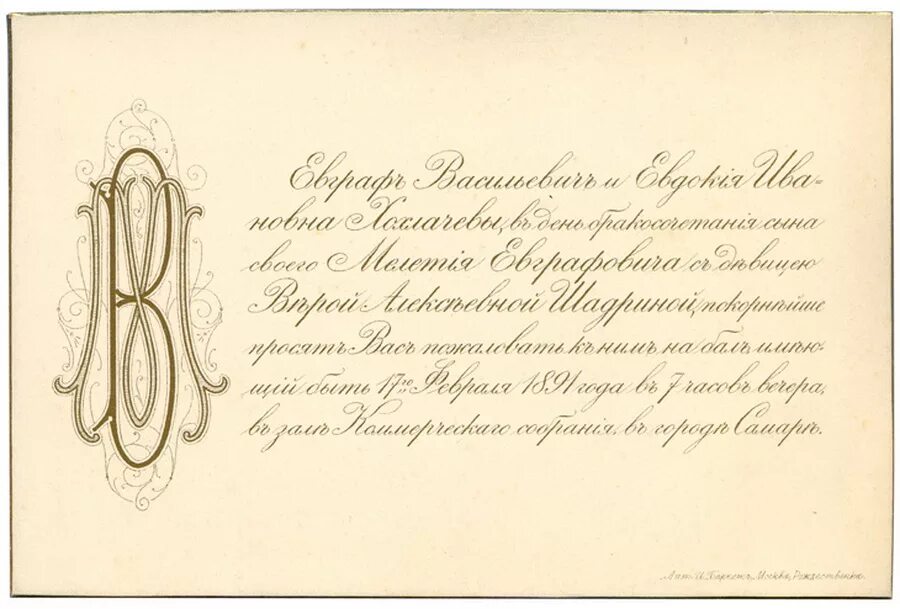 Евграфъ Васильевичъ и Евдокія Ива-
новна Хохлачевы, въ день бракосочетанія сына
своего Мелетія Евграфовича съ дѣвицею
Вѣрой Алексѣевной Шадриной, покорнѣйше
просятъ Васъ пожаловать къ нимъ на балъ, имѣю-
щій быть 17го Февраля 1891 года въ 7 часовъ вечера,
въ залѣ Коммерческаго собранія, въ городѣ Самарѣ.
Москва, Рождественка.